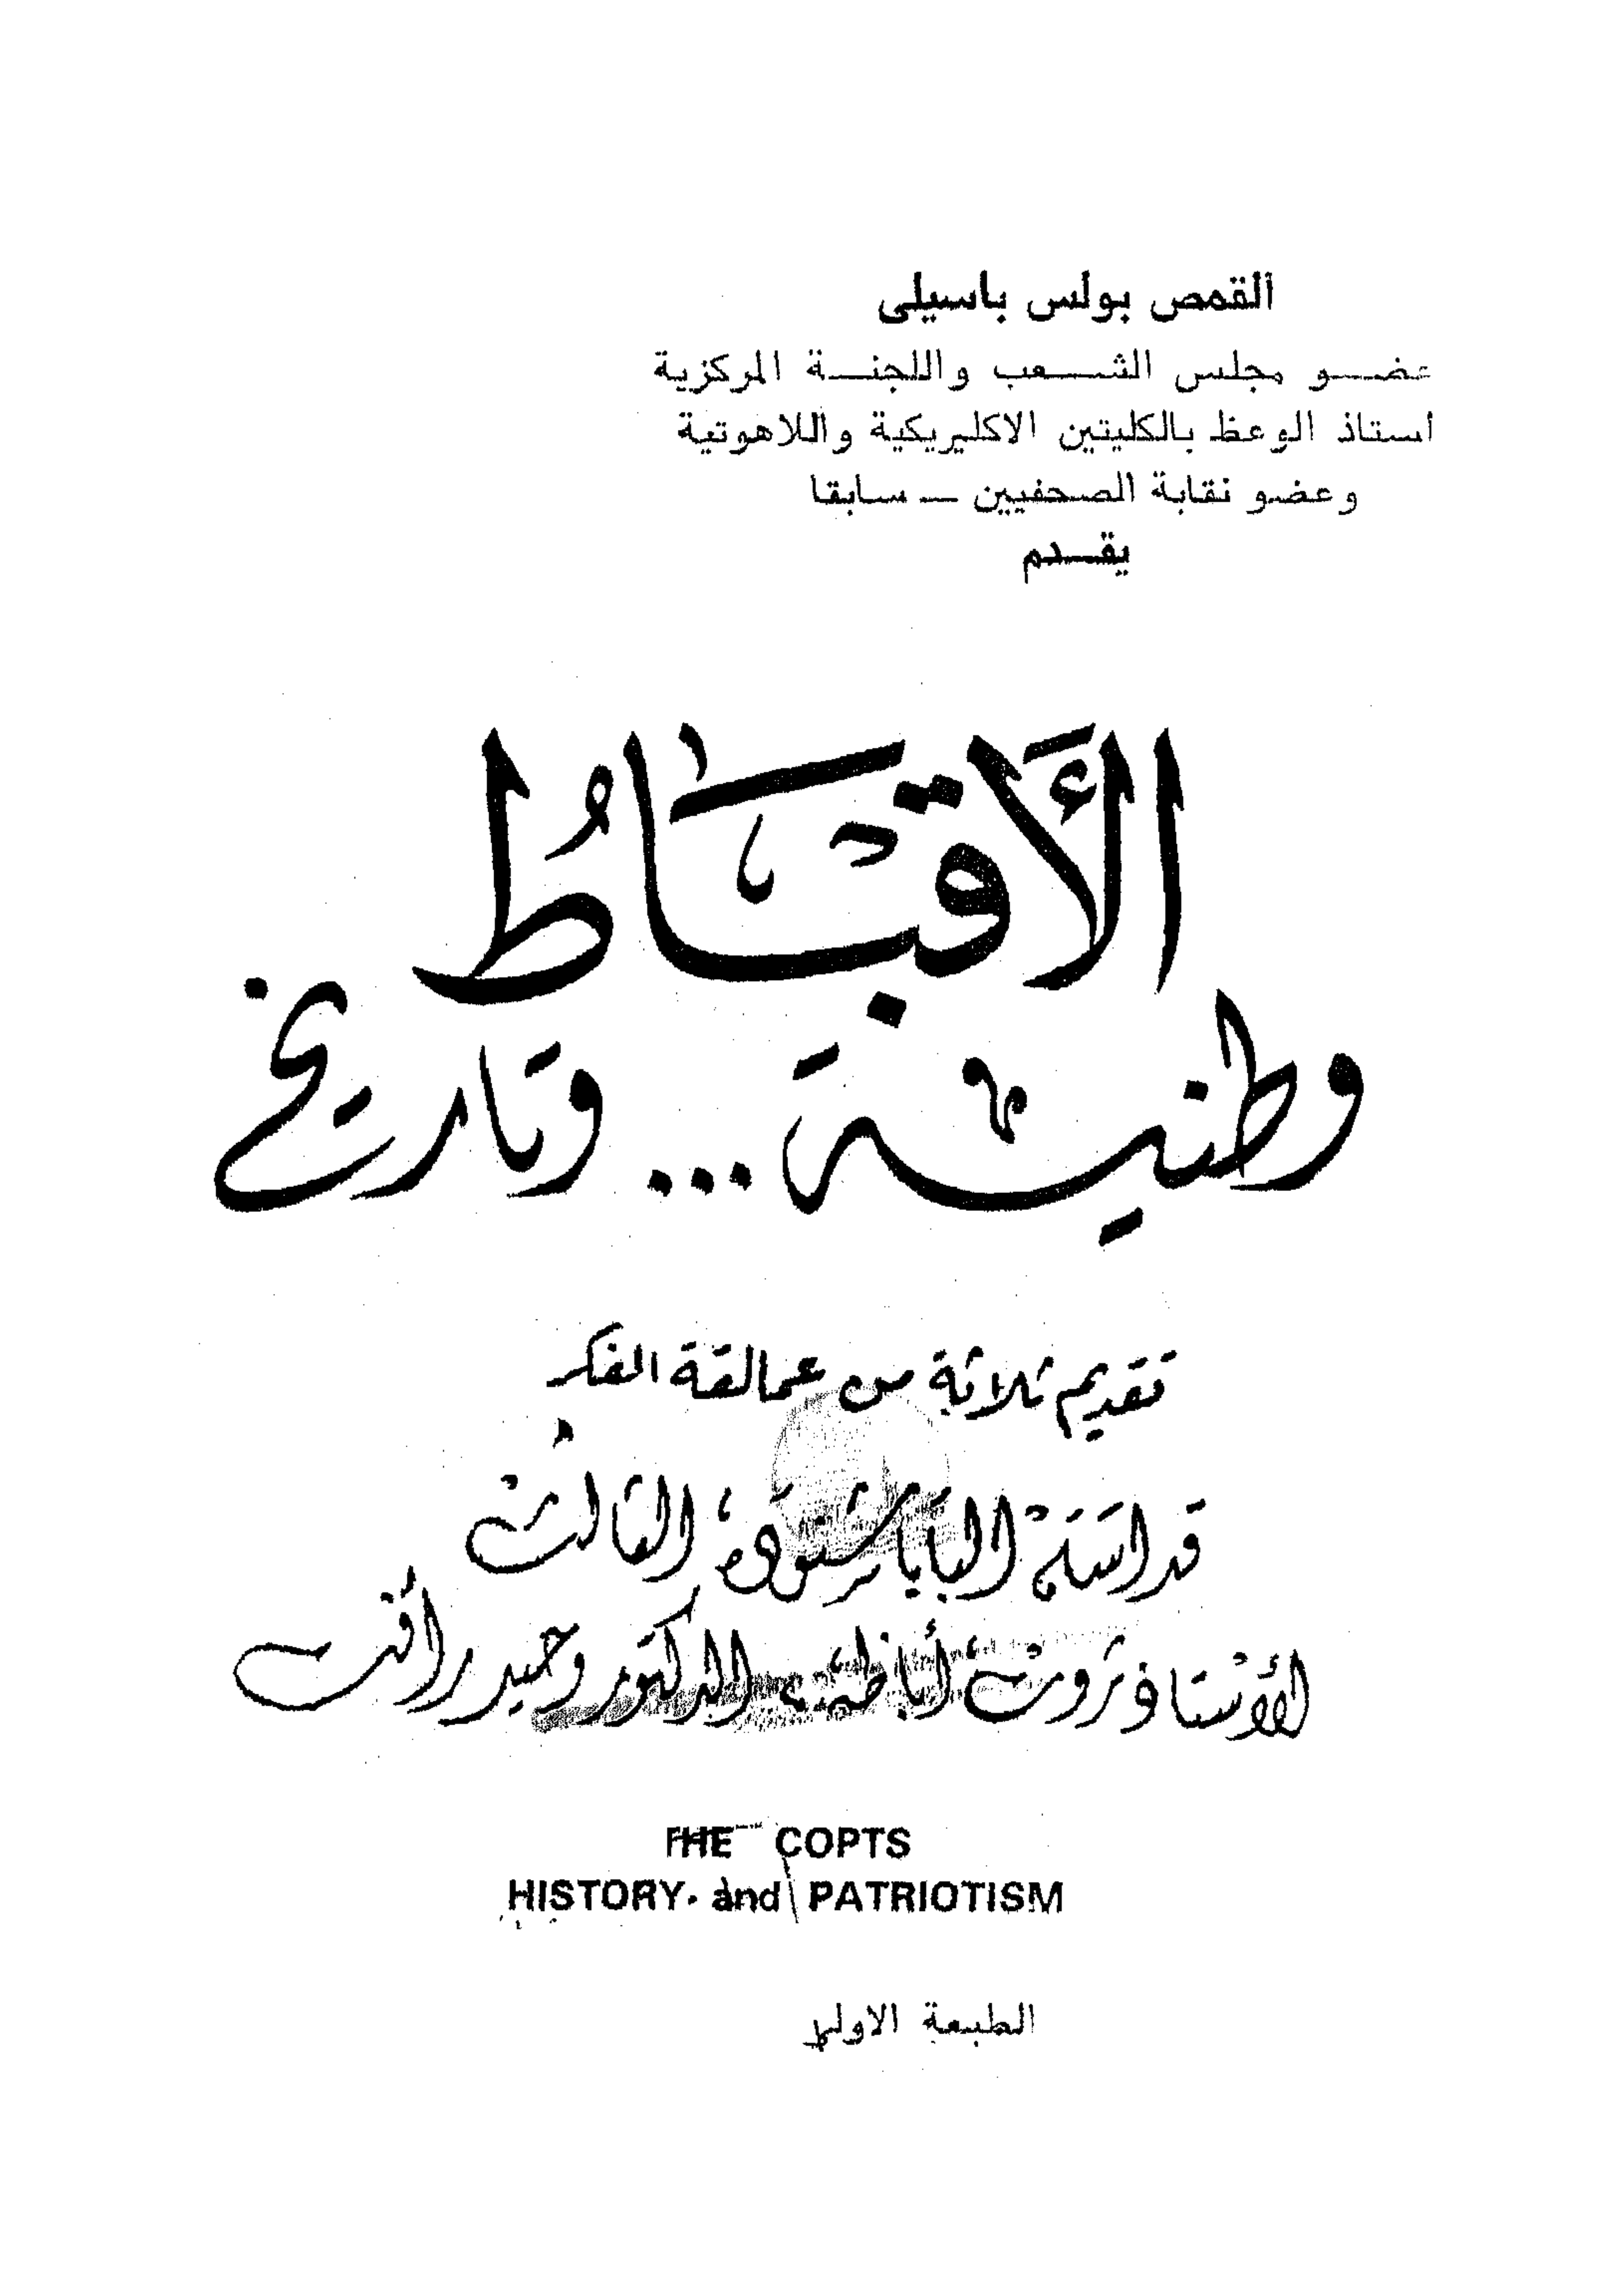 القمص بولس باسيلى
عضو مجلس الشعب واللجنة المركزية
استاذ الوعظ بالكليتين الاكليريكية واللاهوتية
وعضو نقابة الصحفيين — سابقا
يقدم
الأَقبَاطُ
وطنية ... وتاريخ
تقديم ثلاثة من عمالقة الفكر
قداسة البابا شنوده الثالث
الأستاذ ثروت أباظه، الدكتور وحيد رأفت
THE COPTS
HISTORY and PATRIOTISM
الطبعة الاولى